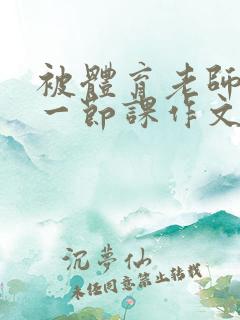 被體育老師
一節課作文
沉夢仙
未經同意禁止轉載